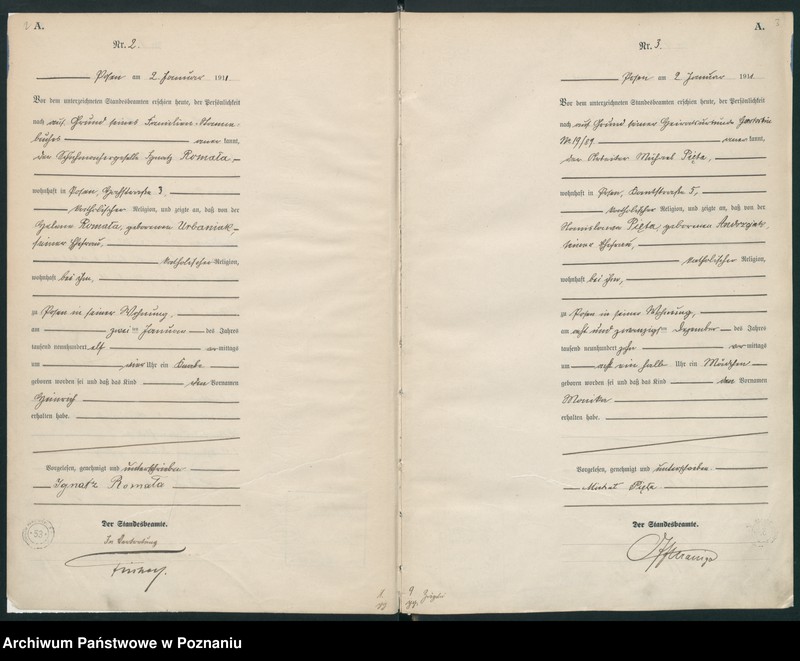 A.
Nr. 2.
Posen am 2. Januar 1911
Vor dem unterzeichneten Standesbeamten erschien heute, der Persönlichkeit
nach auf Grund seines Familien-Stamm-
buches kannt,
der Schuhmachergeselle Ignatz Romała,
wohnhaft in Posen, 3.
katholischer Religion, und zeigte an, daß von der
Helene Romała, geborenen Urbaniak
seiner Ehefrau,
katholischer Religion,
wohnhaft bei ihm,
zu Posen in seiner Wohnung,
am zwei ten Januar des Jahres
tausend neunhundert elf vor mittags
um vier Uhr ein Knabe
geboren worden sei und daß das Kind den Vornamen
Heinrich
erhalten habe.
Vorgelesen, genehmigt und unterschrieben
Ignatz Romała
Der Standesbeamte.
In Vertretung
A.
Nr. 3.
Posen am 2 Januar 1911
Vor dem unterzeichneten Standesbeamten erschien heute, der Persönlichkeit
nach auf Grund seiner Heiratsurkunde
Nr. 19/09 kannt,
der Arbeiter Michael Pięta,
wohnhaft in Posen, 5,
katholischer Religion, und zeigte an, daß von der
Stanislawa Pięta, geborenen
seiner Ehefrau,
katholischer Religion,
wohnhaft bei ihm,
zu Posen in seiner Wohnung,
am acht und zwanzigsten Dezember des Jahres
tausend neunhundert zehn vor mittags
um acht ein halb Uhr ein Mädchen
geboren worden sei und daß das Kind den Vornamen
Monika
erhalten habe.
Vorgelesen, genehmigt und unterschrieben
Pięta
Der Standesbeamte.
Archiwum Państwowe w Poznaniu